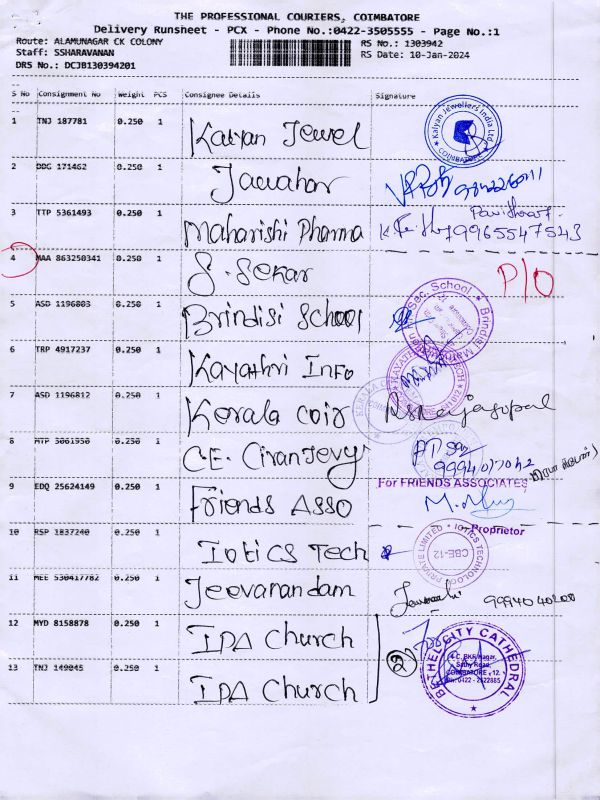 THE PROFESSIONAL COURIERS, COIMBATORE
Delivery Runsheet - PCX - Phone No.:0422-3505555 - Page No.:1
Route: ALAMUNAGAR CK COLONY
RS No.: 1303942
Staff: SSHARAVANAN
RS Date: 10-Jan-2024
DRS No.: DCJB130394201
S No Consignment No Weight PCS Consignee Details Signature
1 TNJ 187781 0.250 1 Kalyan Jewel
Kalyan Jewellers India Ltd
COIMBATORE
2 DDG 171462 0.250 1 Jawahar
3 TTP 5361493 0.250 1 Maharishi Pharma 9965547543
4 MAA 863250341 0.250 1 S. Sekar P/O
5 ASD 1196803 0.250 1 Brindisi School
6 TRP 4917237 0.250 1 Kayathri Info
7 ASD 1196812 0.250 1 Kerala coir
8 MTP 3061950 0.250 1 C.E. Ciranjevy
9994017042
9 EDQ 25624149 0.250 1 Friends Asso
For FRIENDS ASSOCIATES
Proprietor
10 RSP 1837240 0.250 1 Iotics Tech
PRIVATE LIMITED * IOTICS TECHNOLOGY
CBE-12
11 MEE 530417782 0.250 1 Jeevanandam 9994040200
12 MYD 8158878 0.250 1 IPA Church
13 TNJ 149045 0.250 1 IPA Church
BETHEL CITY CATHEDRAL
Sathy Road,
COIMBATORE - 12.